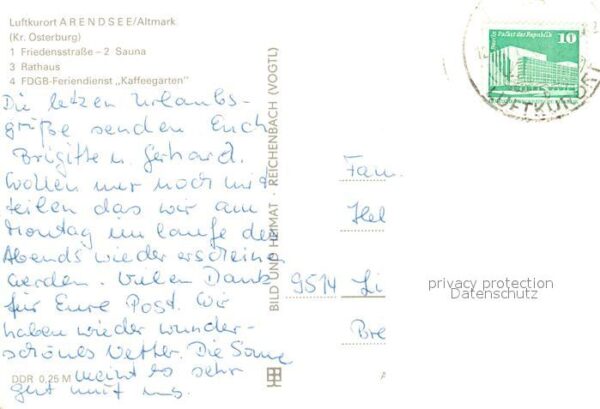 Luftkurort ARENDSEE/Altmark
(Kr. Osterburg)
1 Friedensstraße – 2 Sauna
3 Rathaus
4 FDGB-Feriendienst „Kaffeegarten"
Die letzen Urlaubs-
grüße senden Euch
Brigitte u. Gerhard.
Wollen nur noch mit
teilen das wir am
Montag im laufe des
Abends wieder erscheinen
werden. Vielen Dank
für Eure Post. Wir
haben wieder wunder-
schönes Wetter. Die Sonne
meint es sehr
gut mit uns.
DDR 0,25 M
BILD UND HEIMAT · REICHENBACH (VOGTL)
Berlin Palast der Republik
10
LUFTKURORT
Fam.
Hel
9514 Li
Bre
privacy protection
Datenschutz